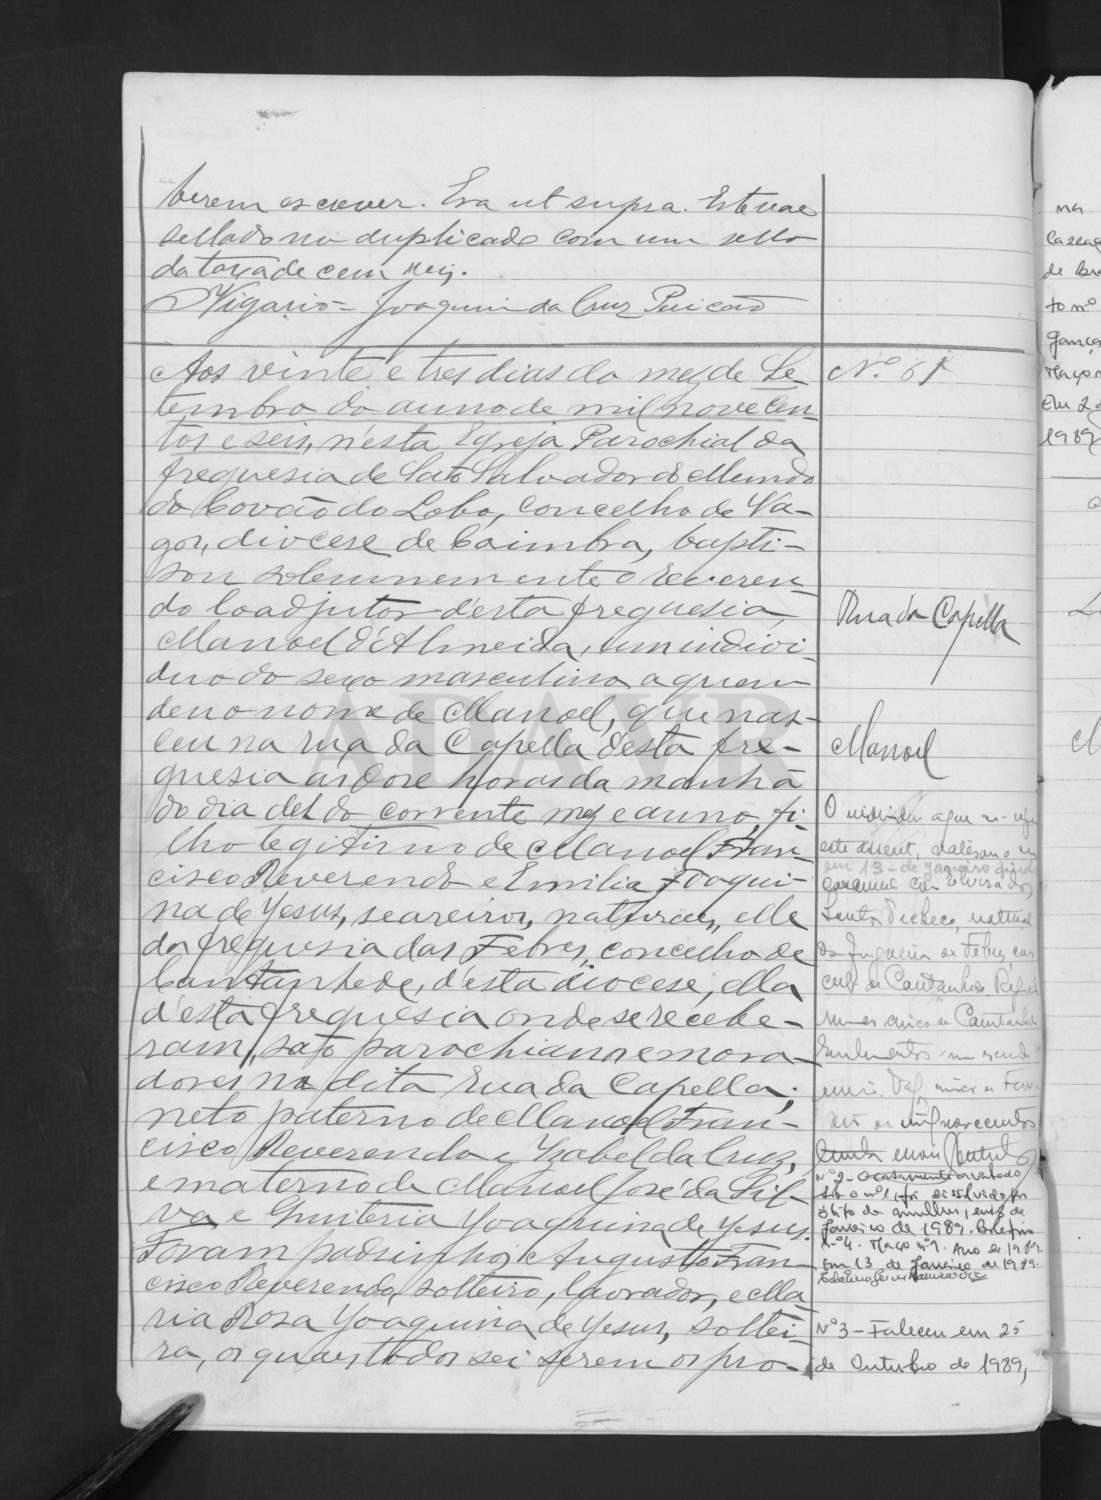 berem escrever. Era ut supra. Este vae
sellado no duplicado com um sello
da taxa de cem reis.
O Vigario = Joaquim da Cruz
Aos vinte e tres dias do mez de Se-
tembro do anno de mil novecen-
tos e seis, n'esta Egreja Parochial da
freguesia de Santo Salvador do Mundo
do Covão do Lobo, concelho de Va-
gos, diocese de Coimbra, bapti-
sou solemnemente o reveren-
do Coadjutor d'esta freguesia,
Manoel d'Almeida, um indivi-
duo do sexo masculino a quem
deu o nome de Manoel, que nas-
ceu na rua da Capella d'esta fre-
guesia ás doze horas da manhã
do dia dez do corrente mez e anno, fi-
lho legitimo de Manoel Fran-
cisco Reverendo e Emilia Joaqui-
na de Jesus, seareiros, naturaes, elle
da freguesia das Febres, concelho de
Cantanhede, d'esta diocese, ella
d'esta freguesia onde se recebe-
ram, são parochianos e mora-
dores na dita rua da Capella;
neto paterno de Manoel Fran-
cisco Reverendo e Izabel da Cruz,
e materno de Manoel José da Sil-
va e Quiteria Joaquina de Jesus.
Foram padrinhos Augusto Fran-
cisco Reverendo, solteiro, lavrador, e Ma-
ria Rosa Joaquina de Jesus, soltei-
ra, os quaes todos sei serem os pro-
Nº 61
Rua da Capella
Manoel
O individuo a que se refere
este assent,
em 13 de Janeiro
Santos Pacheco, natural
da freguesia de Febres, con
celho de Cantanhede.
mil novecentos
Nº 2 - O casamento averbado
sob o nº 1, foi dissolvido por
óbito da mulher, em 2 de
Janeiro de 1989. Boletim
nº 4. Maço nº 1. Ano de 1989.
Em 13 de Janeiro de 1989.
Nº 3 - Faleceu em 25
de Outubro de 1989,
ADAVR
na
de
to nº
Maço n
Em 2
1989